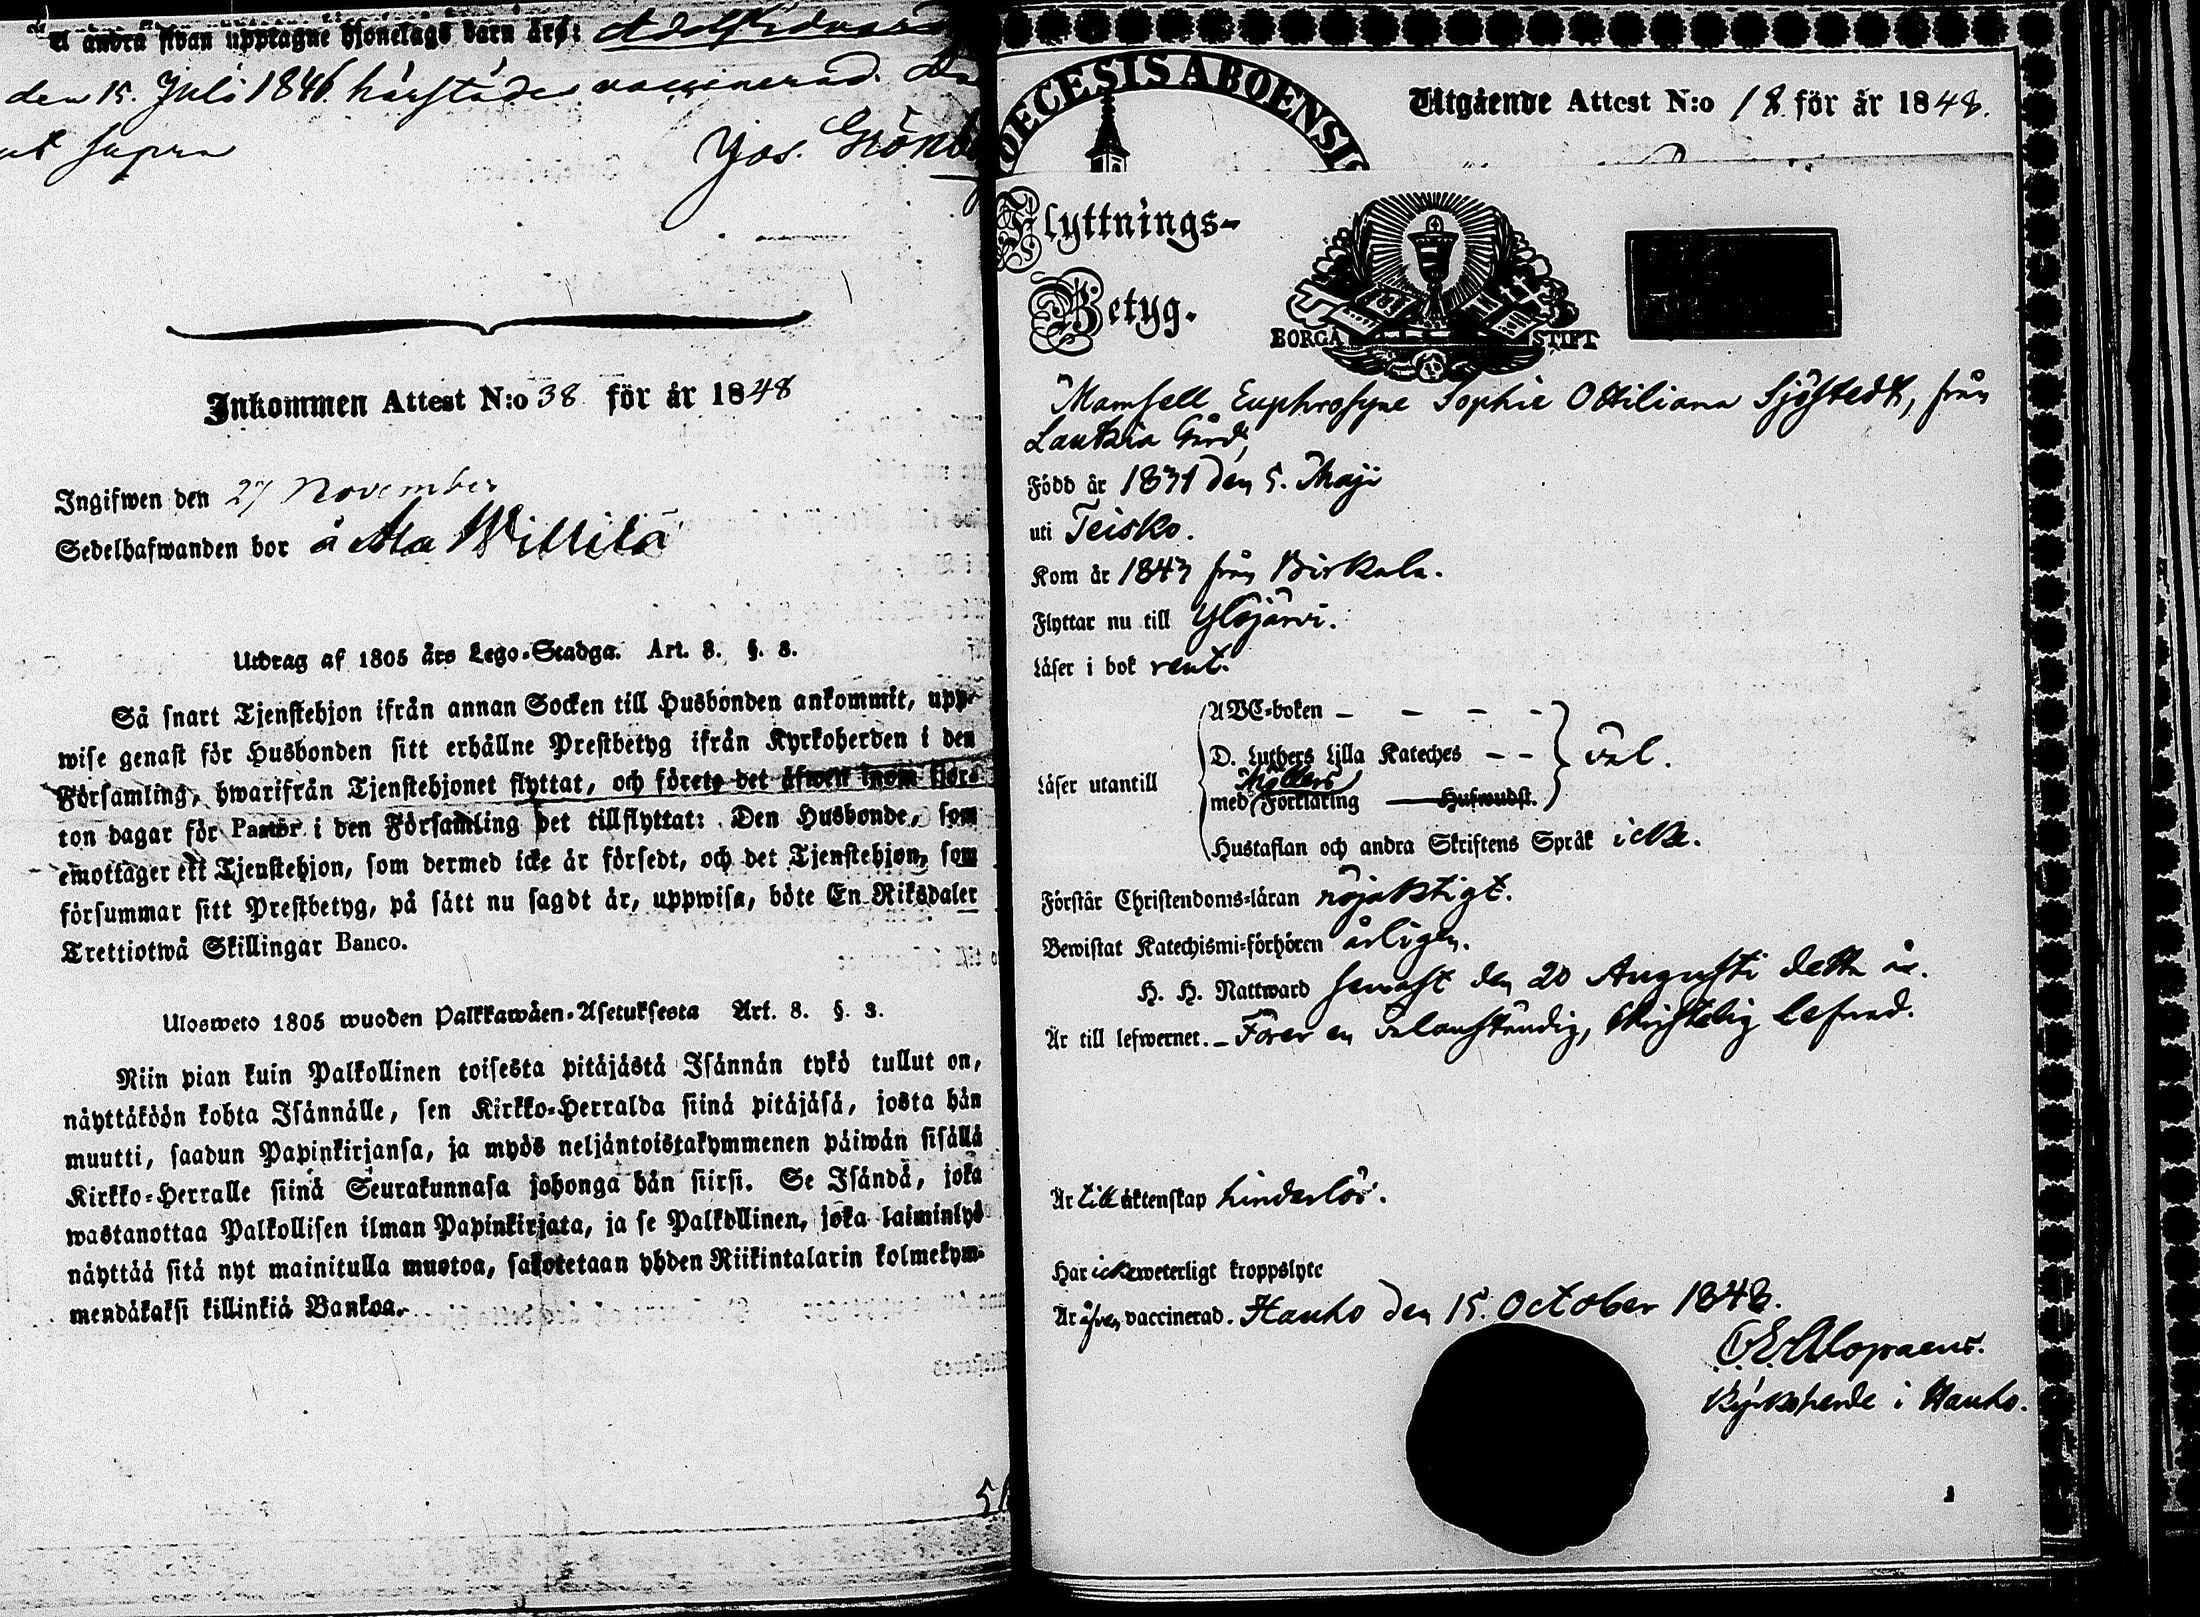 å andra sidan upptagne hjonelags barn äro:
den 15. Juli 1846 härstädes vaccinerad.
ut supra
Jos. Grönb
Inkommen Attest N:o 38 för år 1848
Ingifwen den 27 November
Sedelhafwanden bor å Ala Willilä
Utdrag af 1805 års Lego-Stadga. Art. 8. §. 3.
Så snart Tjenstehjon ifrån annan Socken till Husbonden ankommit, upp-
wise genast för Husbonden sitt erhållne Prestbetyg ifrån Kyrkoherden i den
Församling, hwarifrån Tjenstehjonet flyttat, och förete det äfwen inom fjor-
ton dagar för Pastor i den Församling det tillflyttat: Den Husbonde, som
emottager ett Tjenstehjon, som dermed icke är försedt, och det Tjenstehjon, som
försummar sitt Prestbetyg, på sätt nu sagdt är, uppwisa, böte En Riksdaler
Trettiotwå Skillingar Banco.
Ulosweto 1805 wuoden Palkkawäen-Asetuksesta Art. 8. §. 3.
Niin pian kuin Palkollinen toisesta pitäjästä Isännän tykö tullut on,
näyttäköön kohta Isännälle, sen Kirkko-Herralda siinä pitäjäsä, josta hän
muutti, saadun Papinkirjansa, ja myös neljäntoistakymmenen päiwän sisällä
Kirkko-Herralle siinä Seurakunnasa johonga hän siirsi. Se Isändä, joka
wastanottaa Palkollisen ilman Papinkirjata, ja se Palkollinen, joka laiminlyö
näyttää sitä nyt mainitulla muotoa, sakotetaan yhden Riikintalarin kolmekym-
mendäkaksi killinkiä Bankoa.
DIOECESIS ABOENSIS
Utgående Attest N:o 18. för år 1848.
Flyttnings-
Betyg.
BORGÅ STIFT
Mamsell Euphrosyne Sophie Ottiliana Sjöstedt, från
Lautsia Gård,
Född år 1831 den 5. Maji
uti Teisko.
Kom år 1847 från Birkala.
Flyttar nu till Ylöjärvi.
Läser i bok rent.
Läser utantill
ABC-boken – – – –
D. Luthers Lilla Kateches – – väl.
Möllers
med Förklaring — Hufwudst.
Hustaflan och andra Skriftens Språk icke.
Förstår Christendoms-läran nöjaktigt.
Bewistat Katechismi-förhören årligen.
H. H. Nattward senast den 20 Augusti detta år.
Är till lefwernet. – Förer en välanständig, Christelig lefnad.
Är till äktenskap hinderlös.
Har icke weterligt kroppslyte
Är äfven vaccinerad. Hauho den 15. October 1848.
C. E. Alopaeus.
Kyrkoherde i Hauho.